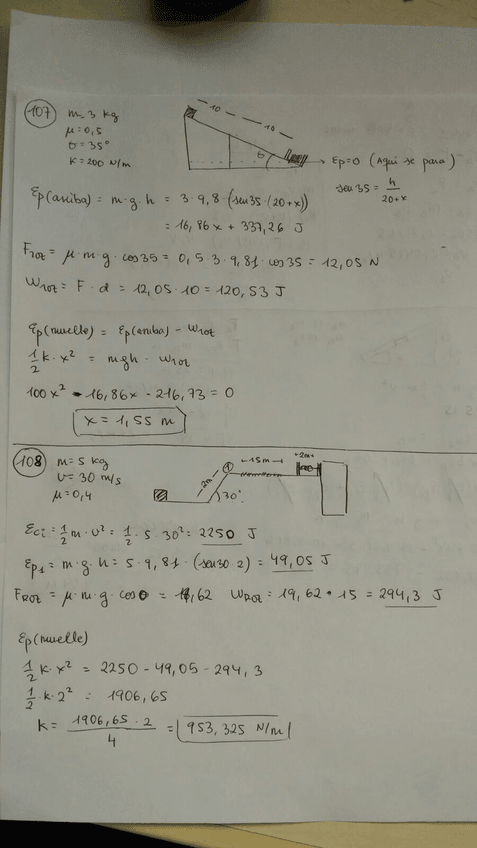 107 m= 3 kg
μ=0,5
θ=35°
K=200 N/m
10
10
θ
Ep=0 (Aqui se para)
sen 35 = h / 20+x
Ep(arriba) = m·g·h = 3·9,8·(sen35·(20+x))
= 16,86x + 337,26 J
Froz = μ·m·g·cos35 = 0,5·3·9,81·cos35 = 12,05 N
Wroz = F·d = 12,05·10 = 120,53 J
Ep(muelle) = Ep(arriba) - Wroz
1/2 k·x² = mgh - Wroz
100x² - 16,86x - 216,73 = 0
x = 1,55 m
108 m=5 kg
v= 30 m/s
μ=0,4
2m
1
30°
15m
2m
Eci = 1/2 m·v² = 1/2·5·30² = 2250 J
Ep1 = m·g·h = 5·9,81·(sen30·2) = 49,05 J
Froz = μ·m·g·cos0 = 19,62 Wroz = 19,62·15 = 294,3 J
Ep(muelle)
1/2 k·x² = 2250 - 49,05 - 294,3
1/2·k·2² = 1906,65
k = 1906,65·2 / 4 = 953,325 N/m